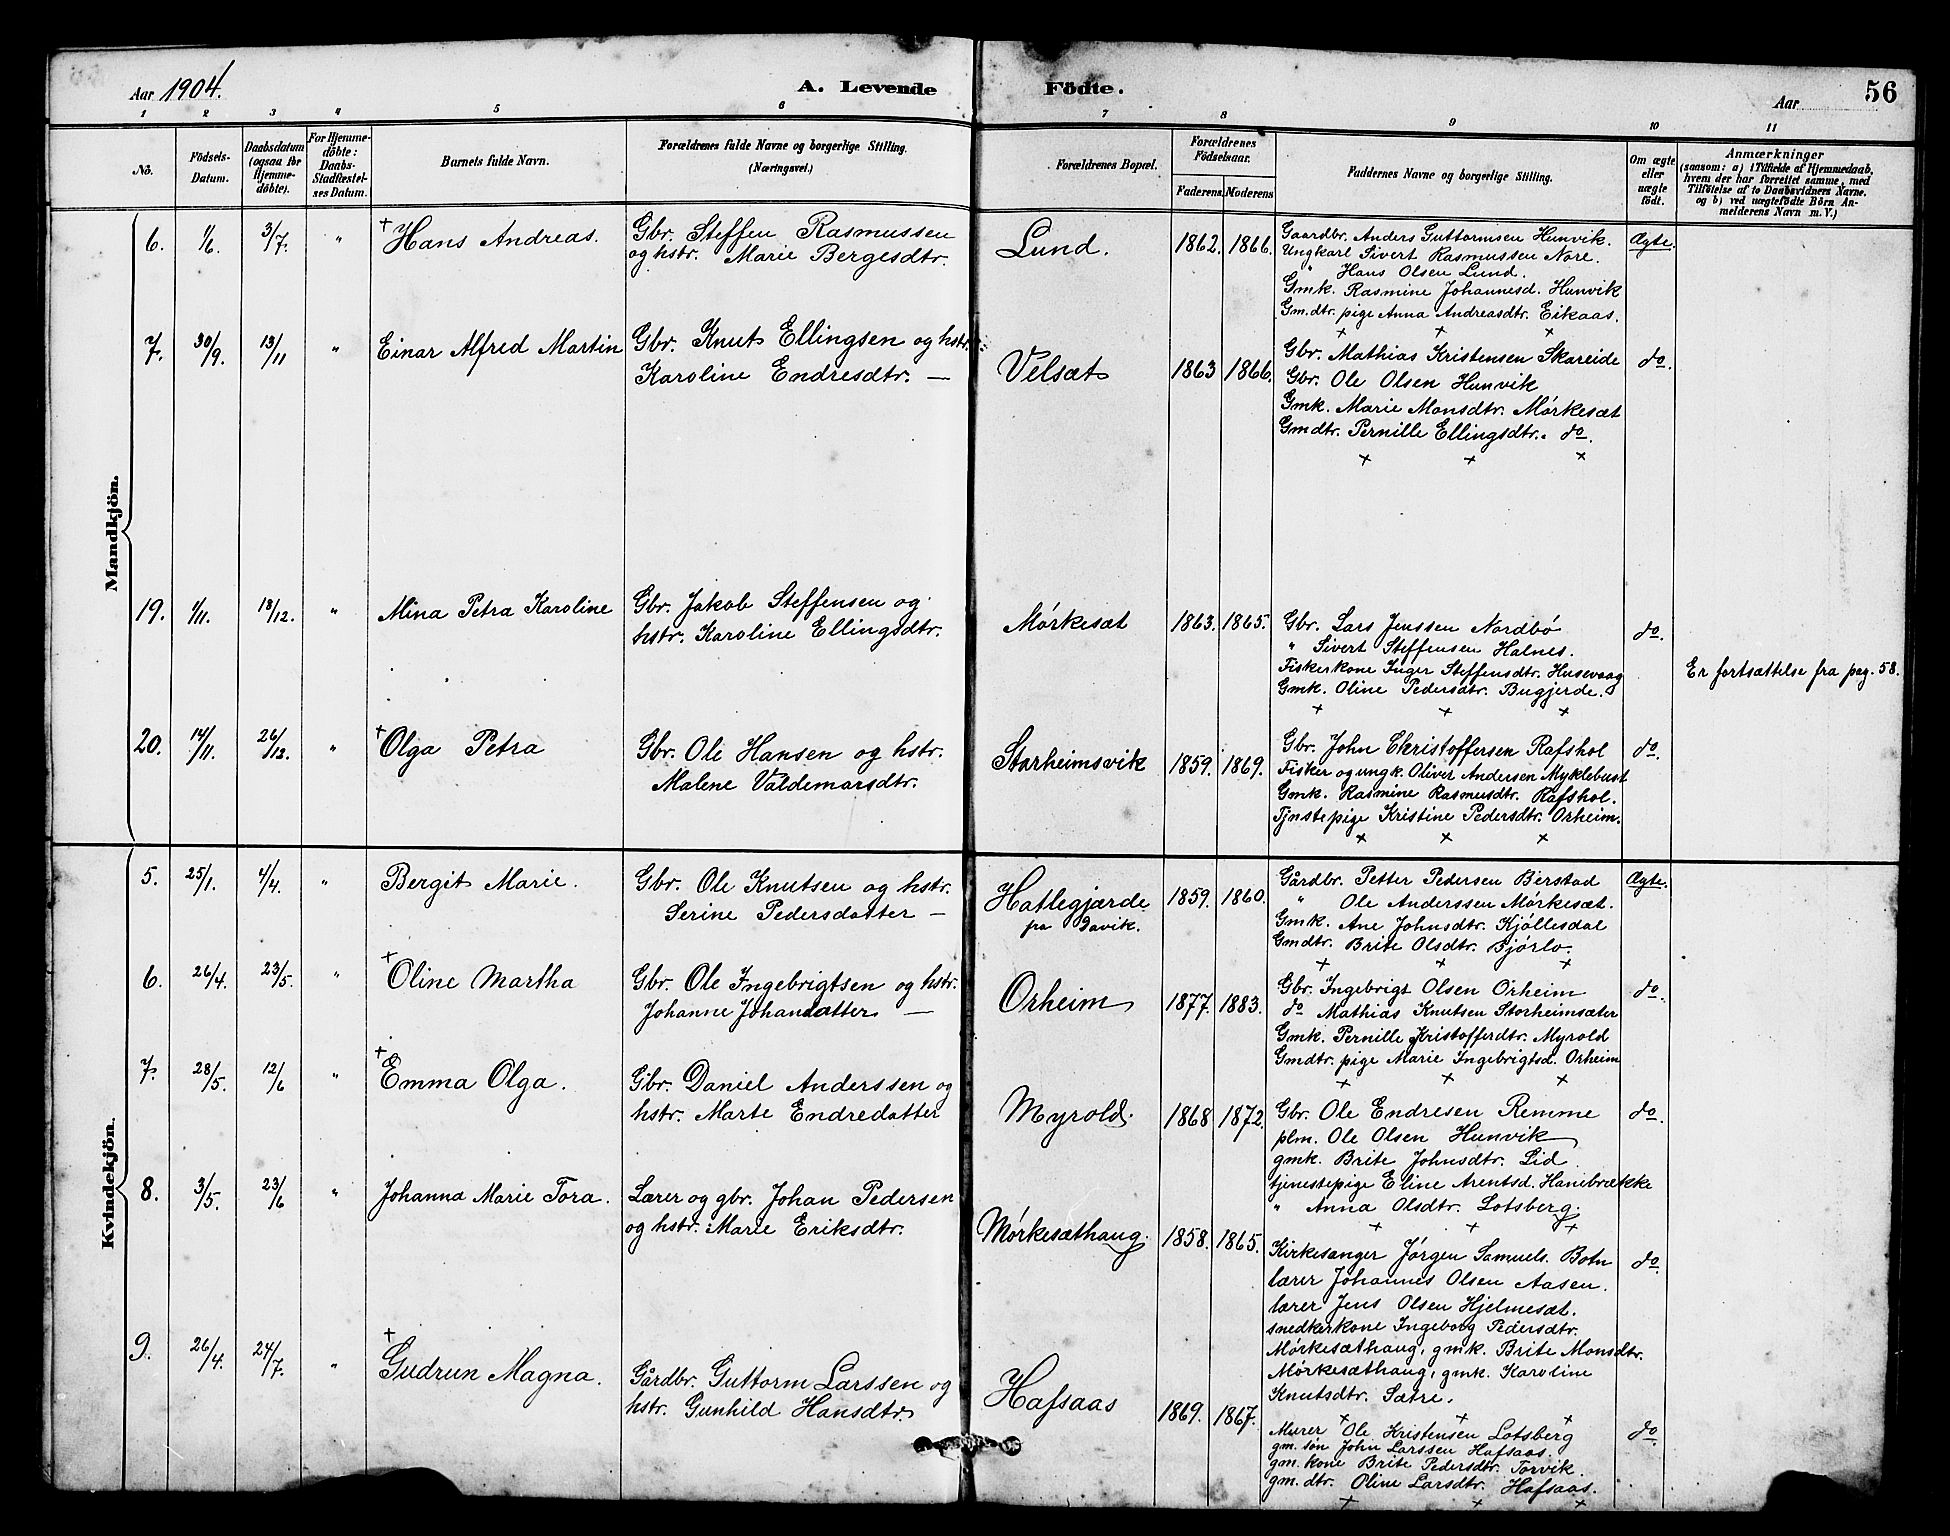 Aar 1904.
A. Levende Födte.
Aar
56
1 2 3 4 5 6 7 8 9 10 11
No.
Födsels-
Datum.
Daabsdatum
(ogsaa for
Hjemme-
döbte).
For Hjemme-
döbte:
Daabs-
Stadfæstel-
ses Datum.
Barnets fulde Navn.
Forældrenes fulde Navne og borgerlige Stilling.
(Næringsvei.)
Forældrenes Bopæl.
Forældrenes
Födselsaar.
Faderens. Moderens
Faddernes Navne og borgerlige Stilling.
Om ægte
eller
uægte
födt.
Anmærkninger
(saasom: a) i Tilfælde af Hjemmedaab,
hvem der har forrettet samme, med
Tilföielse af to Daabsvidners Navne,
og b) ved uægtefödte Börn An-
melderens Navn m. V.)
Mandkjön.
6. 1/6. 3/7. " + Hans Andreas.
Gbr. Steffen Rasmussen
og hstr. Marie Bergesdtr.
Lund. 1862. 1866.
Gaardbr. Anders Guttormsen Hunvik.
Ungkarl Sivert Rasmussen Nore.
" Hans Olsen Lund.
Gmk. Rasmine Johannesd. Hunvik
Gm.dtr. pige Anna Andreasdtr. Eikaas.
+ + +
Ægte.
7. 30/9. 13/11 " Einar Alfred Martin
Gbr. Knut Ellingsen og hstr.
Karoline Endresdtr. —
Velsæt 1863 1866.
Gbr. Mathias Kristensen Skareide
Gbr. Ole Olsen Hunvik
Gmk. Marie Monsdtr. Mörkesæt
Gmdtr. Pernille Ellingsdtr. do.
+ + +
do.
19. 1/11. 18/12. " Mina Petra Karoline
Gbr. Jakob Steffensen og
hstr. Karoline Ellingsdtr.
Mörkesæt 1863. 1865.
Gbr. Lars Jenssen Nordbö
" Sivert Steffensen Halnes.
Fiskerkone Inger Steffensdtr. Husevaag
Gmk. Oline Pedersdtr. Bugjerde.
+ + +
do.
Er fortsættelse fra pag. 58.
20. 14/11. 26/12. " + Olga Petra
Gbr. Ole Hansen og hstr.
Malene Valdemarsdtr.
Storheimsvik 1859. 1869.
Gbr. John Christoffersen Rafshol
Fisker og ungk. Oliver Andersen Myklebust
Gmk. Rasmine Rasmusdtr. Rafshol.
Tjnstepige Kristine Pedersdtr. Orheim.
+ + +
do.
Kvindekjön.
5. 25/1. 4/4. " Bergit Marie.
Gbr. Ole Knutsen og hstr.
Serine Pedersdatter —
Hatlegjærde
pa Davik.
1859. 1860.
Gårdbr. Petter Pedersen Berstad
" Ole Anderssen Mörkesæt.
Gmk. Ane Johnsdtr. Kjöllesdal
Gmdtr. Brite Olsdtr. Bjørlo.
+ + +
Ægte.
6. 26/4. 23/5. " + Oline Martha
Gbr. Ole Ingebrigtsen og hstr.
Johanne Johansdatter —
Orheim 1877. 1883.
Gbr. Ingebrigt Olsen Orheim
do Mathias Knutsen Storheimsæter
Gmk. Pernille Kristofferdtr. Myrold
Gmdtr. pige Marie Ingebrigtsd. Orheim
+ + +
do.
7. 28/5. 12/6 " + Emma Olga.
Gbr. Daniel Anderssen og
hstr. Marte Endredatter
Myrold. 1868 1872.
Gbr. Ole Endresen Remme
plm. Ole Olsen Hunvik
gmk. Brite Johnsdtr. Lid
tjenestepige Eline Arentsd. Hanebrække
" Anna Olsdtr. Lotsberg.
+ + +
do.
8. 3/5. 23/6 " Johanna Marie Tora.
Lærer og gbr. Johan Pedersen
og hstr. Marie Eriksdtr.
Mörkesæthaug. 1858. 1865.
Kirkesanger Jörgen Samuels. Botn
lærer Johannes Olsen Aasen.
lærer Jens Olsen Hjelmesæt.
snedkerkone Ingeborg Pedersdtr.
Mörkesæthaug, gmk. Brite Monsdtr.
Mörkesæthaug, gmk. Karoline
Knutsdtr. Sætre.
+ + +
do.
9. 26/4. 24/7. " + Gudrun Magna.
Gårdbr. Guttorm Larssen og
hstr. Gunhild Hansdtr.
Hafsaas 1869. 1867.
Murer Ole Kristensen Lotsberg
gm. sön John Larssen Hafsaas.
gm. kone Brite Pedersdtr. Torvik.
gm. dtr. Oline Larsdtr. Hafsaas.
+ + +
do.